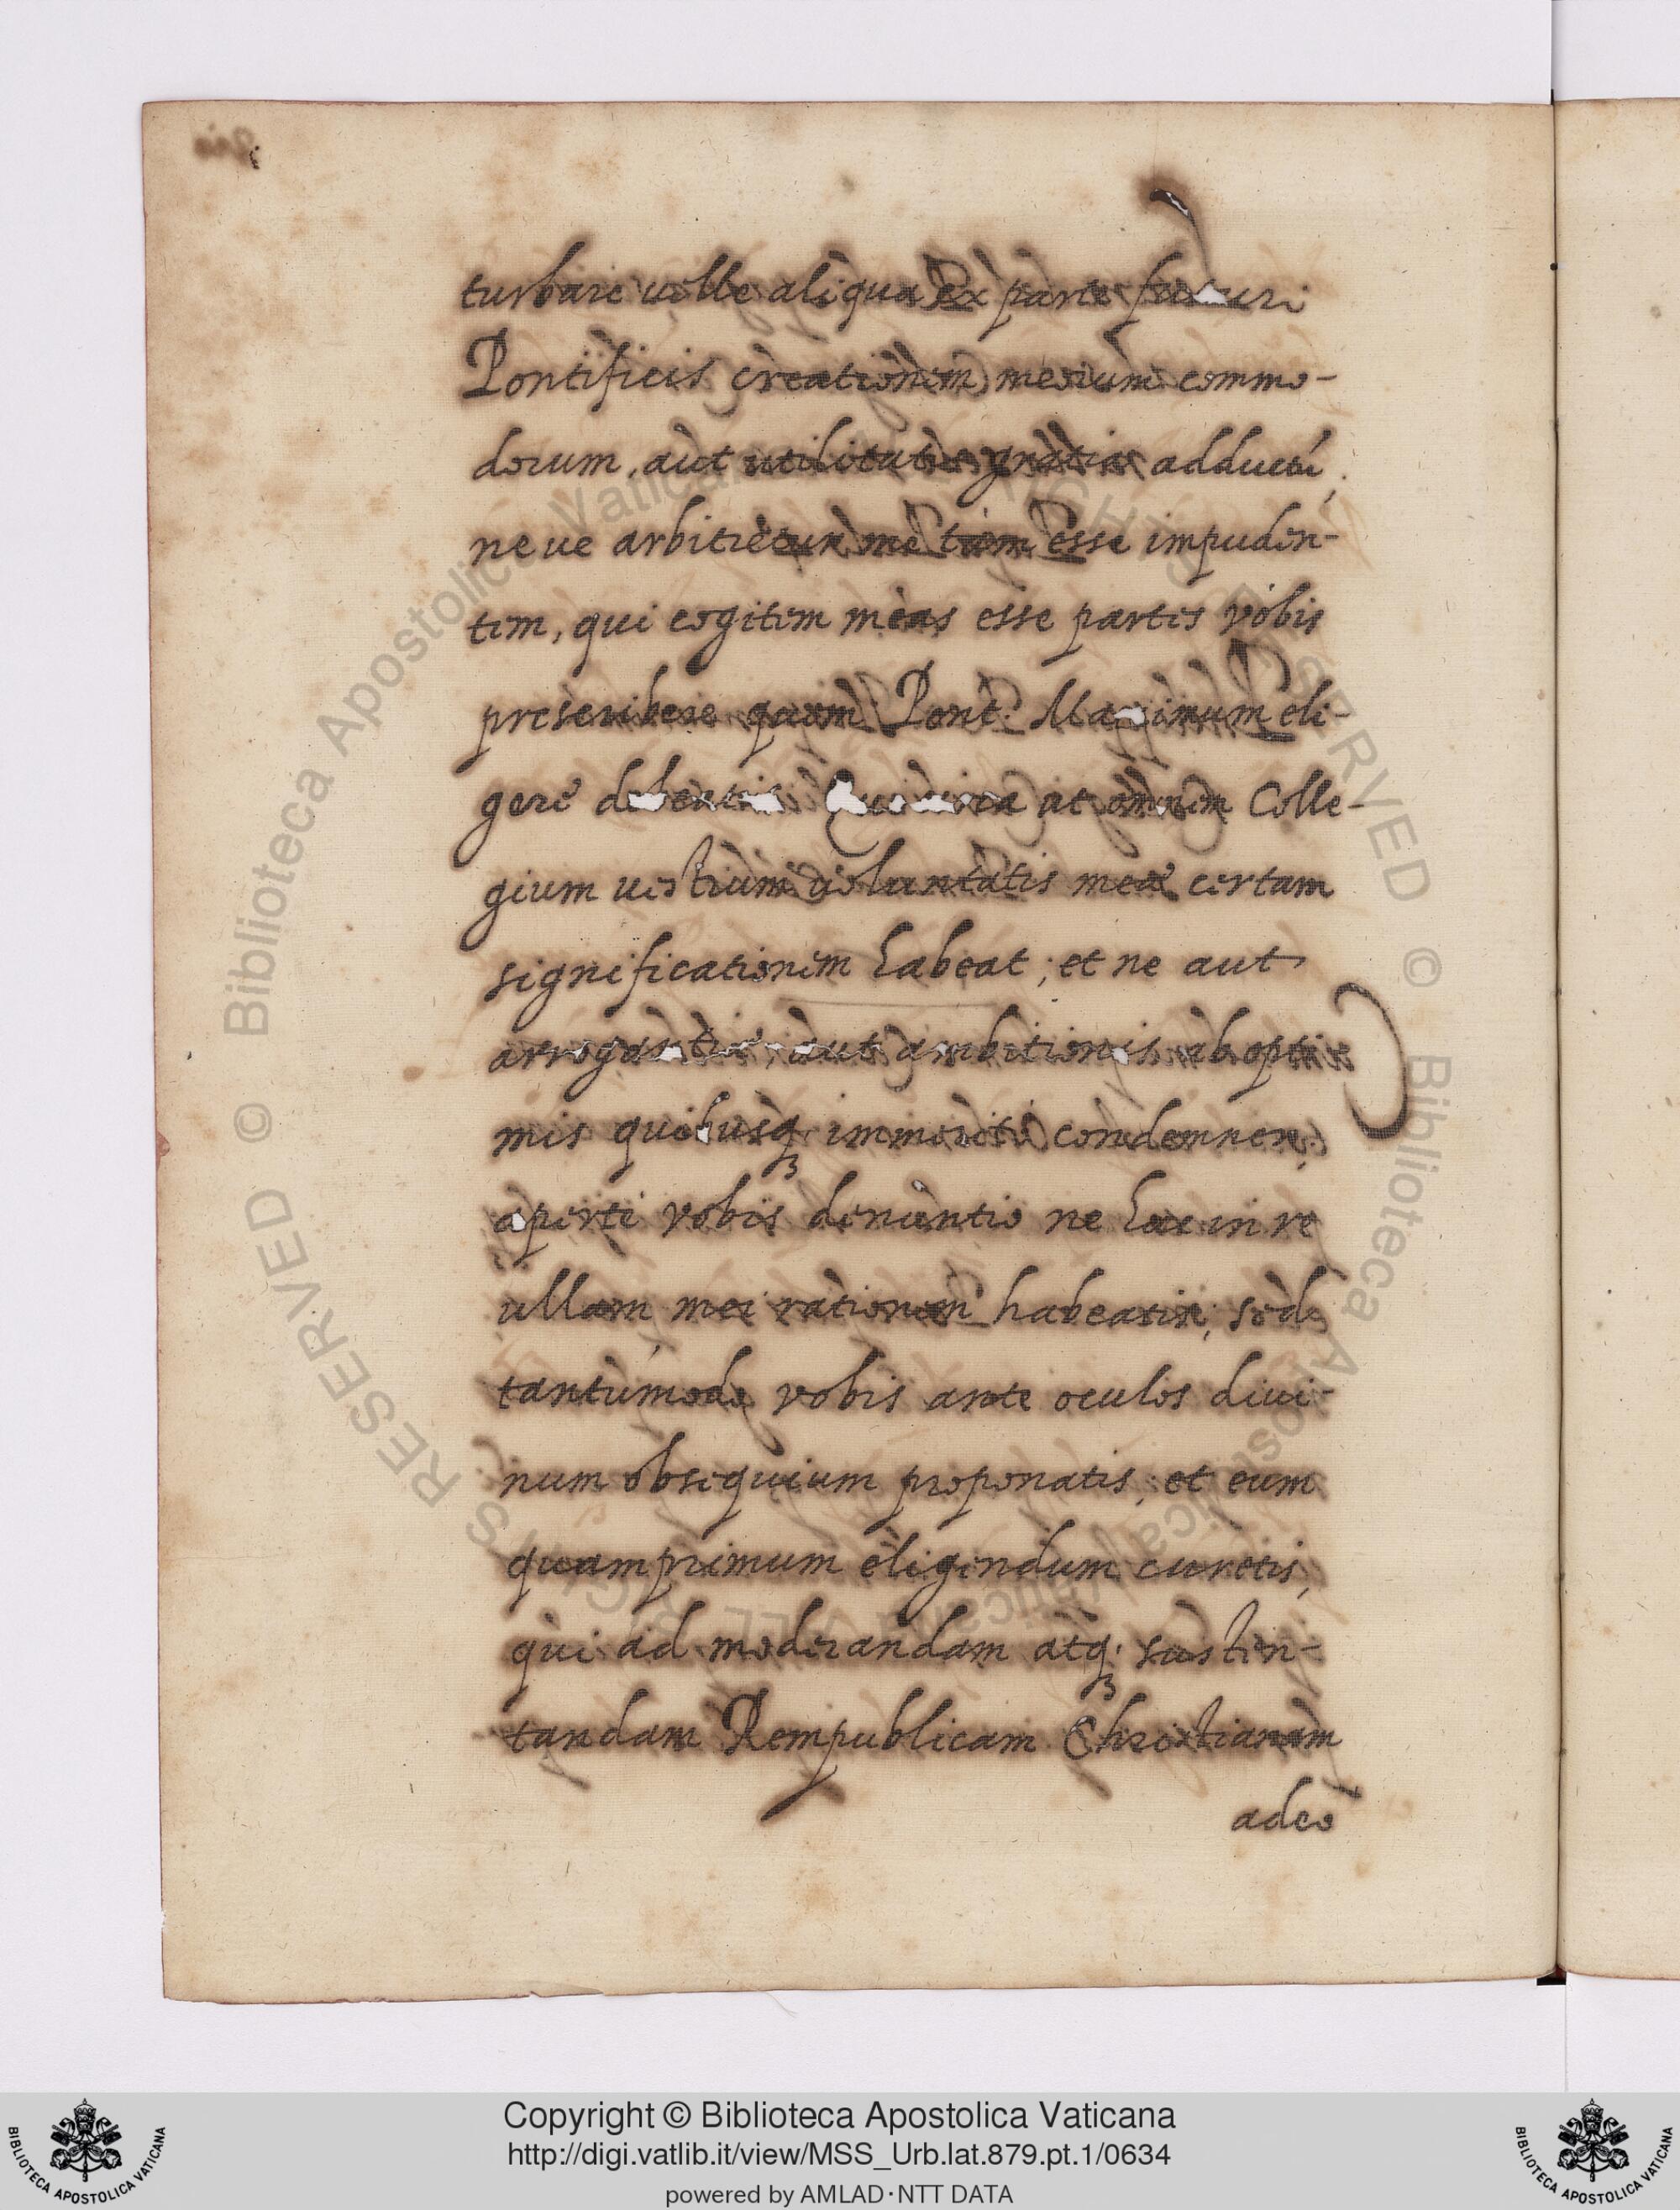 turbare velle aliqua ex parte futuri
Pontificis creationem meorum commo-
dorum, aut utilitatis gratia adductū,
neve arbitretur me tam esse impuden-
tem, qui cogitem meas esse partes vobis
prescribere quem Pont. Maximum eli-
gere debeatis. Quocirca ut omnem Colle-
gium vestrum voluntatis meæ certam
significationem habeat; et ne aut
arrogantiæ, aut ambitionis ab opti-
mis quibusq3 immeritò condemner,
apertè vobis denuntio ne hac in re
ullam mei rationem habeatis, sed
tantùmodo vobis ante oculos divi-
num obsequium proponatis; et eum
quamprimum eligendum curetis,
qui ad moderandam atq3 susten-
tandam Rempublicam Christianam
adeo
© Biblioteca Apostolica Vaticana ALL RIGHTS RESERVED
© Biblioteca Apostolica Vaticana ALL RIGHTS RESERVED
Copyright © Biblioteca Apostolica Vaticana
http://digi.vatlib.it/view/MSS_Urb.lat.879.pt.1/0634
powered by AMLAD·NTT DATA
BIBLIOTECA APOSTOLICA VATICANA
BIBLIOTECA APOSTOLICA VATICANA